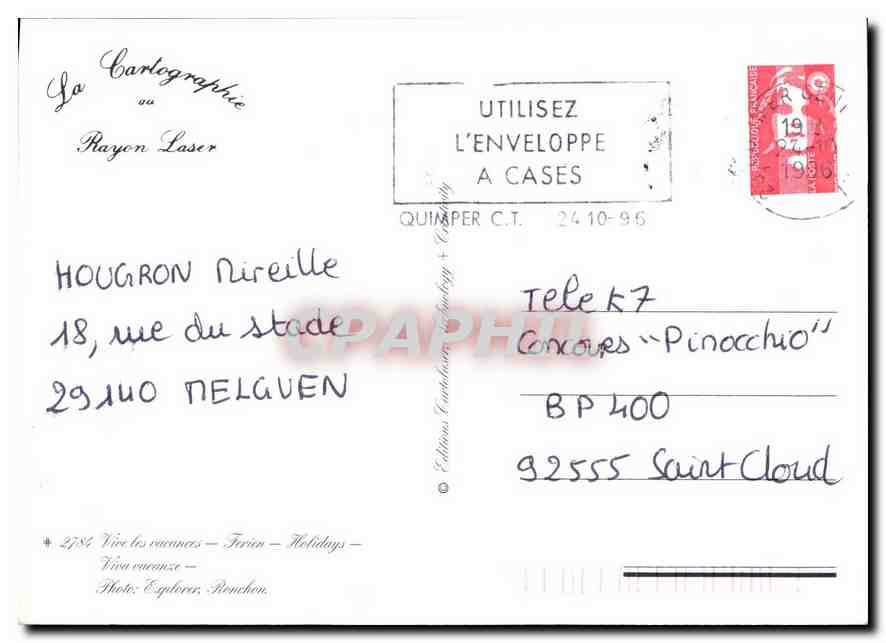 La Cartographie
au
Rayon Laser
UTILISEZ
L'ENVELOPPE
A CASES
QUIMPER C.T. 24 10-96
REPUBLIQUE FRANCAISE
19 H
24-10
1996
HOUGRON Mireille
18, rue du stade
29140 MELGUEN
© Editions Cartolaser Technology & Creativity
CPAPHIL
Tele K7
Concours "Pinocchio"
BP 400
92555 Saint Cloud
* 2784 Vive les vacances — Ferien — Holidays —
Viva vacanze —
Photo: Explorer, Ronchou.